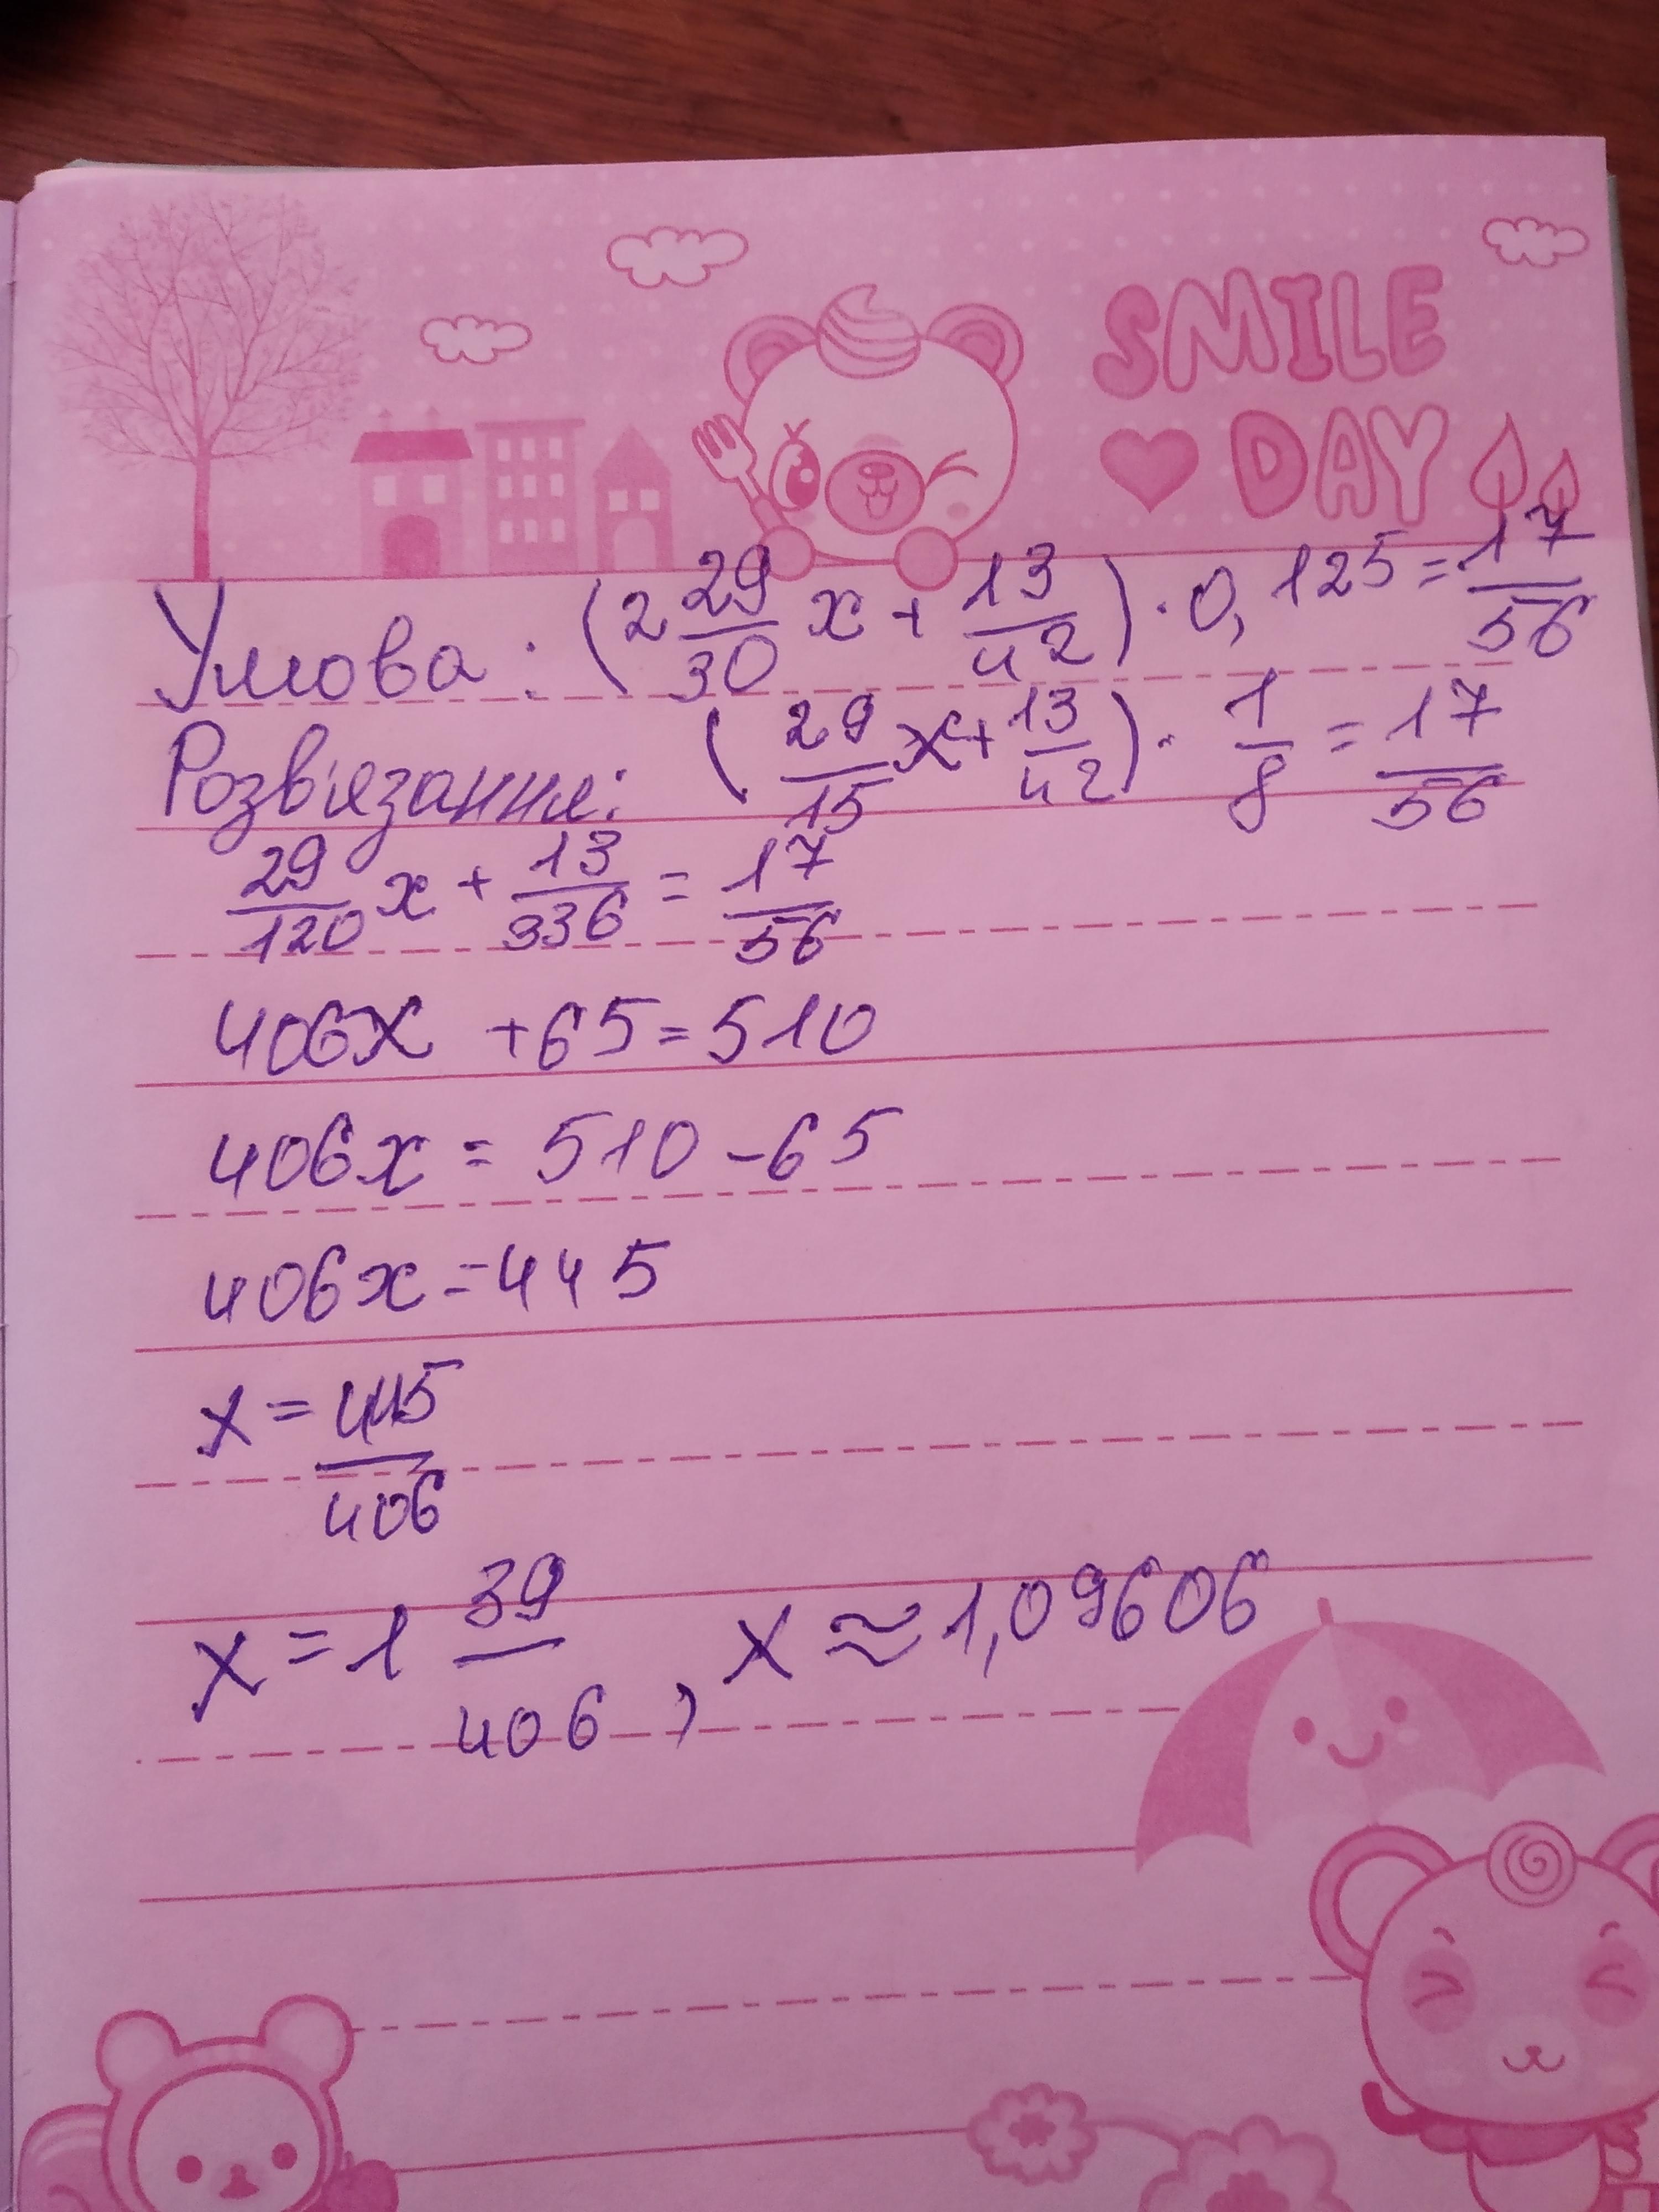 SMILE
DAY
Умова: (2 29/30 x + 13/42) · 0,125 = 17/56
Розв'язання: (29/15 x + 13/42) · 1/8 = 17/56
29/120 x + 13/336 = 17/56
406x + 65 = 510
406x = 510 - 65
406x = 445
x = 445/406
x = 1 39/406, x ≈ 1,09606